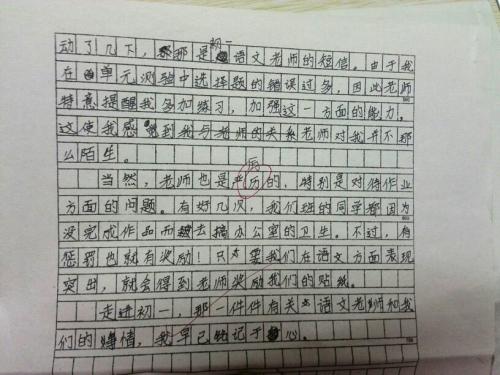 动了几下，那是初一语文老师的短信。由于我
在单元测验中选择题的错误过多，因此老师
特意提醒我多加练习，加强这一方面的能力。
这使我感到我与老师的关系老师对我并不那
么陌生。
厉
当然，老师也是严历的，特别是对待作业
方面的问题。有好几次，我们班的同学都因为
没完成作品而去搞办公室的卫生。不过，有
惩罚也就有奖励！只要我们在语文方面表现
突出，就会得到老师奖励我们的贴纸。
走进初一，那一件件有关语文老师和我
们的事情，我早已铭记于心。